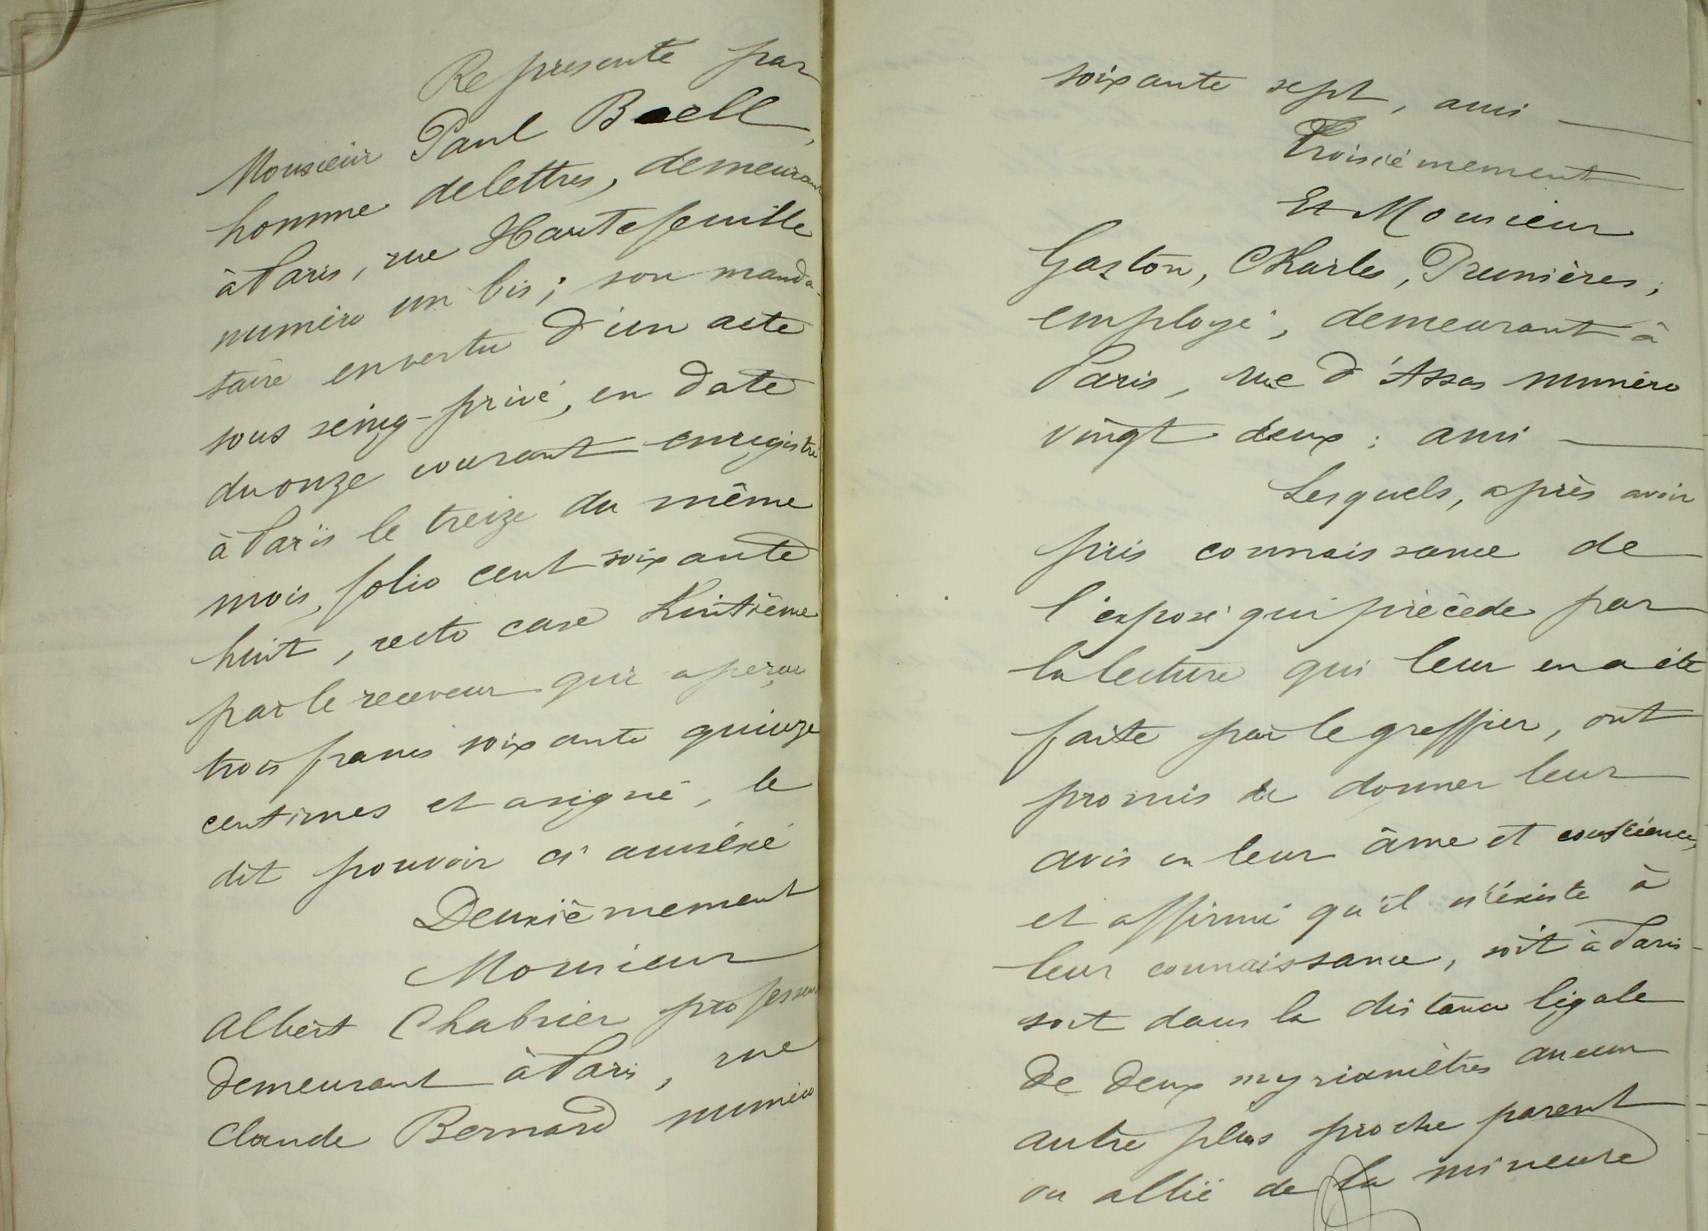 Représenté par
Monsieur Paul Boell,
homme de lettres, demeurant
à Paris, rue Hautefeuille
numéro un bis ; son manda-
taire en vertu d'un acte
sous seing-privé, en date
du onze courant enregistré
à Paris le treize du même
mois, folio cent soixante
huit, recto case huitième
par le receveur qui a perçu
trois francs soixante quinze
centimes et a signé, le
dit pouvoir ci annéxé
Deuxièmement
Monsieur
Albert Chabrier professeur
demeurant à Paris, rue
Claude Bernard numéro
soixante sept, ami
Troisièmement
Et Monsieur
Gaston, Charles, Prunières,
employé, demeurant à
Paris, rue d'Assas numéro
vingt deux ; ami
Lesquels, après avoir
pris connaissance de
l'exposé qui précède par
la lecture qui leur en a été
faite par le greffier, ont
promis de donner leur
avis en leur âme et conscience,
et affirmé qu'il n'éxiste à
leur connaissance, soit à Paris
soit dans la distance légale
de deux myriamètres aucun
autre plus proche parent
ou allié de la mineure